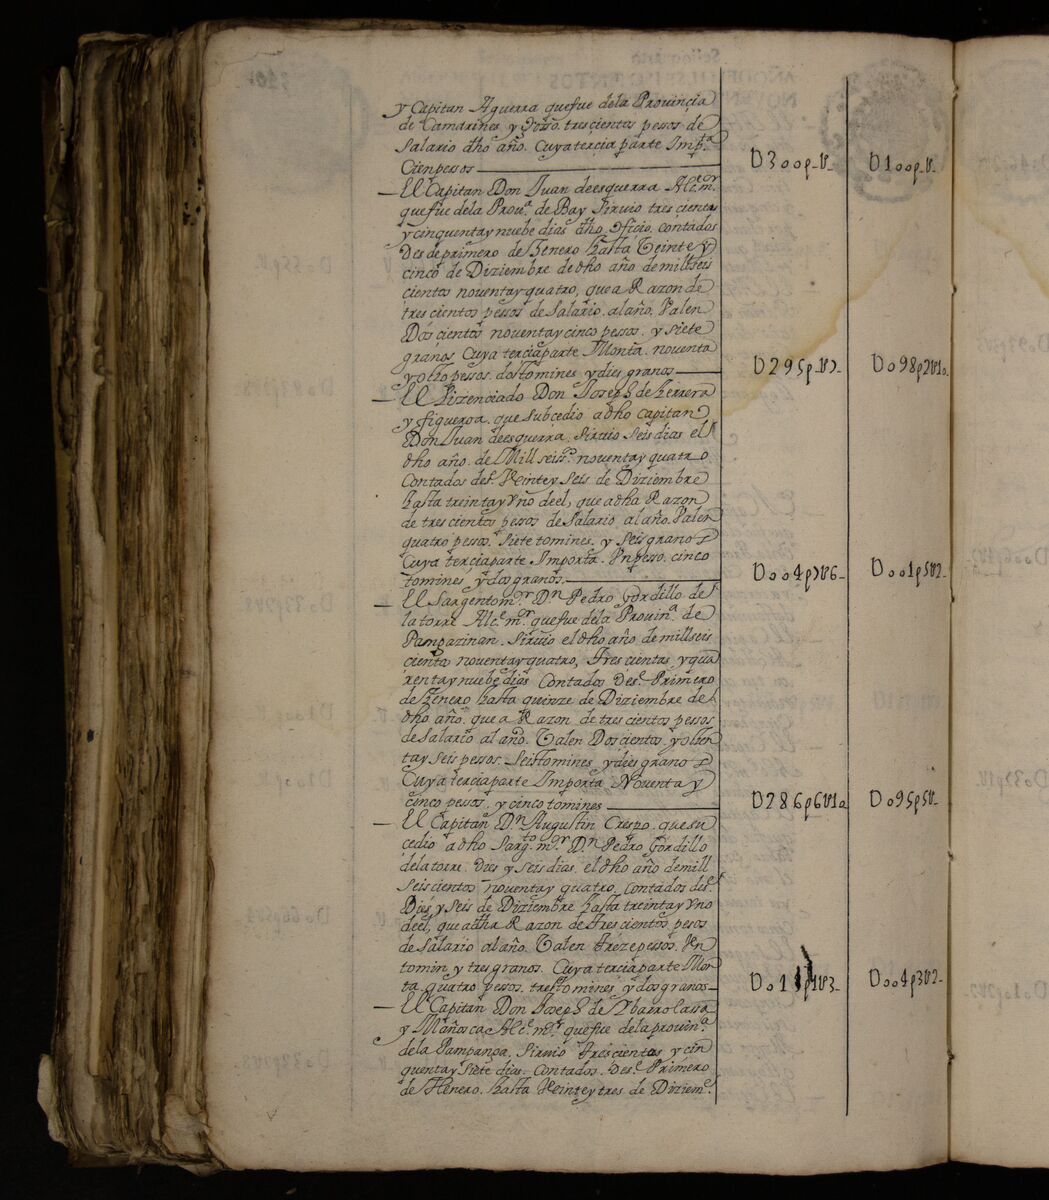 y Capitan Aguerra quefue dela Prouincia
de Camarines y gosso. trescientos pessos de
Salario dho año. Cuya tercia parte Impta
Cien pessos D300p_U_ D100p_U_
El Capitan Don Juan de esguerra Alce mr
quefue dela Proua de Bay Siruio tres cientos
y cinquenta y nuebe dias dho oficio, contados
Des de primero de Henero hasta Veinte y
cinco de Diziembre de dho año de mill seis
cientos noventa y quatro, que a Razon de
tres cientos pessos de Salario al año. Valen
Dos cientos noventa y cinco pessos. y siete
granos Cuya tercia parte Monta. noventa
y ocho pessos. dos tomines y dies granos D295p_U7_ D098p2U10
El Lizenciado Don Joseph de herrera
y figueroa. que subcedio a dho Capitan
Don Juan de esguerra. Siruio Seis dias el
dho año. de Mill seisos noventa y quatro
Contados dese Veinte y Seis de Diziembre
hasta treinta y Vno de el, que a dha Razon
de tres cientos pessos de Salario al año. Valen
quatro pessos. Siete tomines. y Seis granos
Cuya tercia parte Importa. Vn pesso. cinco
tomines y dos granos. D004p7U6_ D001p5U2_
El Sargento mor Dn Pedro Gordillo de
la torre Alce mr quefue dela Prouina de
Pangazinan. Siruio el dho año de mill seis
cientos noventa y quatro, Tres cientos y qua
renta y nuebe dias Contados Dese Primero
de henero hasta quinze de Diziembre de
dho año. que a Razon de tres cientos pessos
de Salario al año. Valen Doscientos y ochen
ta y Seis pessos. Seis tomines y dies granos
Cuya tercia parte Importa Noventa y
cinco pessos. y cinco tomines D286p6U10 D095p5U_
El Capitan Dn Augustin Crespo. que su
cedio a dho Sargto mor Dn Pedro Gordillo
de la torre Dies y Seis dias. el dho año de mill
Seis cientos noventa y quatro. Contados dese
Dies y Seis de Diziembre hasta treinta y Vno
de el, que a dha Razon de Tres cientos pesos
de Salario al año. Valen Treze pessos. Vn
tomin y tres granos. Cuya tercia parte Mon
ta quatro pessos. tres tomines y dos granos D013p1U3_ D004p3U2_
El Capitan Don Joseph de Ybarrolassa
y Mañosca Alce mr quefue de la prouina
de la Pampanga. Siruio Tres cientos y cin
quenta y Siete dias. Contados. Dese Primero
de Henero. hasta Veinte y tres de Dizieme